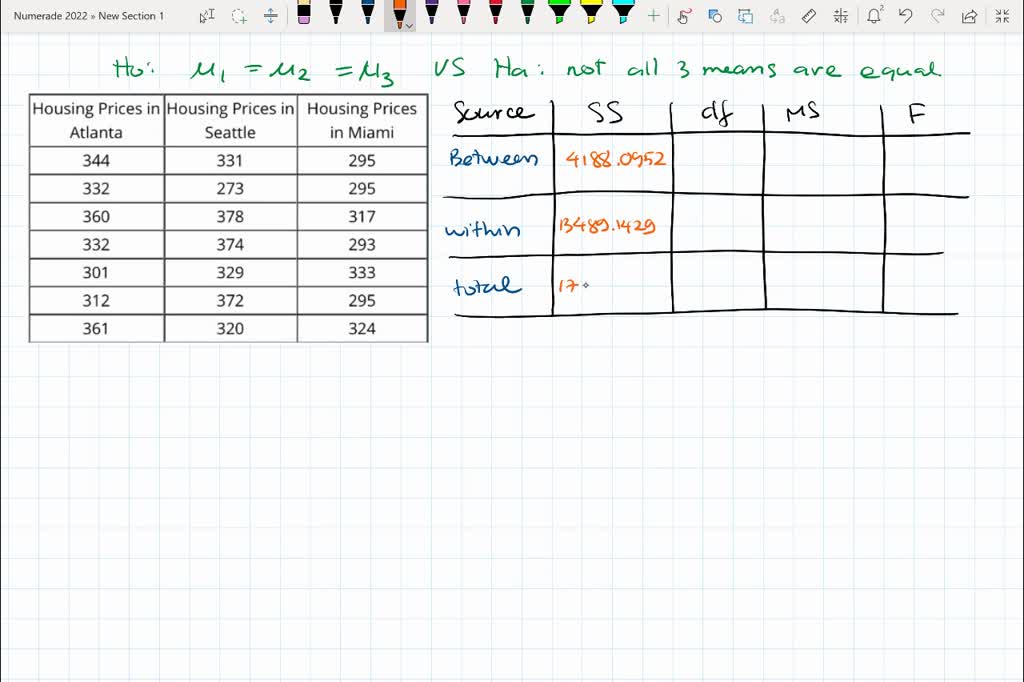 Numerade 2022 » New Section 1
Ho: μ1 = μ2 = μ3 VS Ha: not all 3 means are equal
Housing Prices in Atlanta Housing Prices in Seattle Housing Prices in Miami
344 331 295
332 273 295
360 378 317
332 374 293
301 329 333
312 372 295
361 320 324
Source SS df MS F
Between 4188.0952
within 13489.1429
total 17.